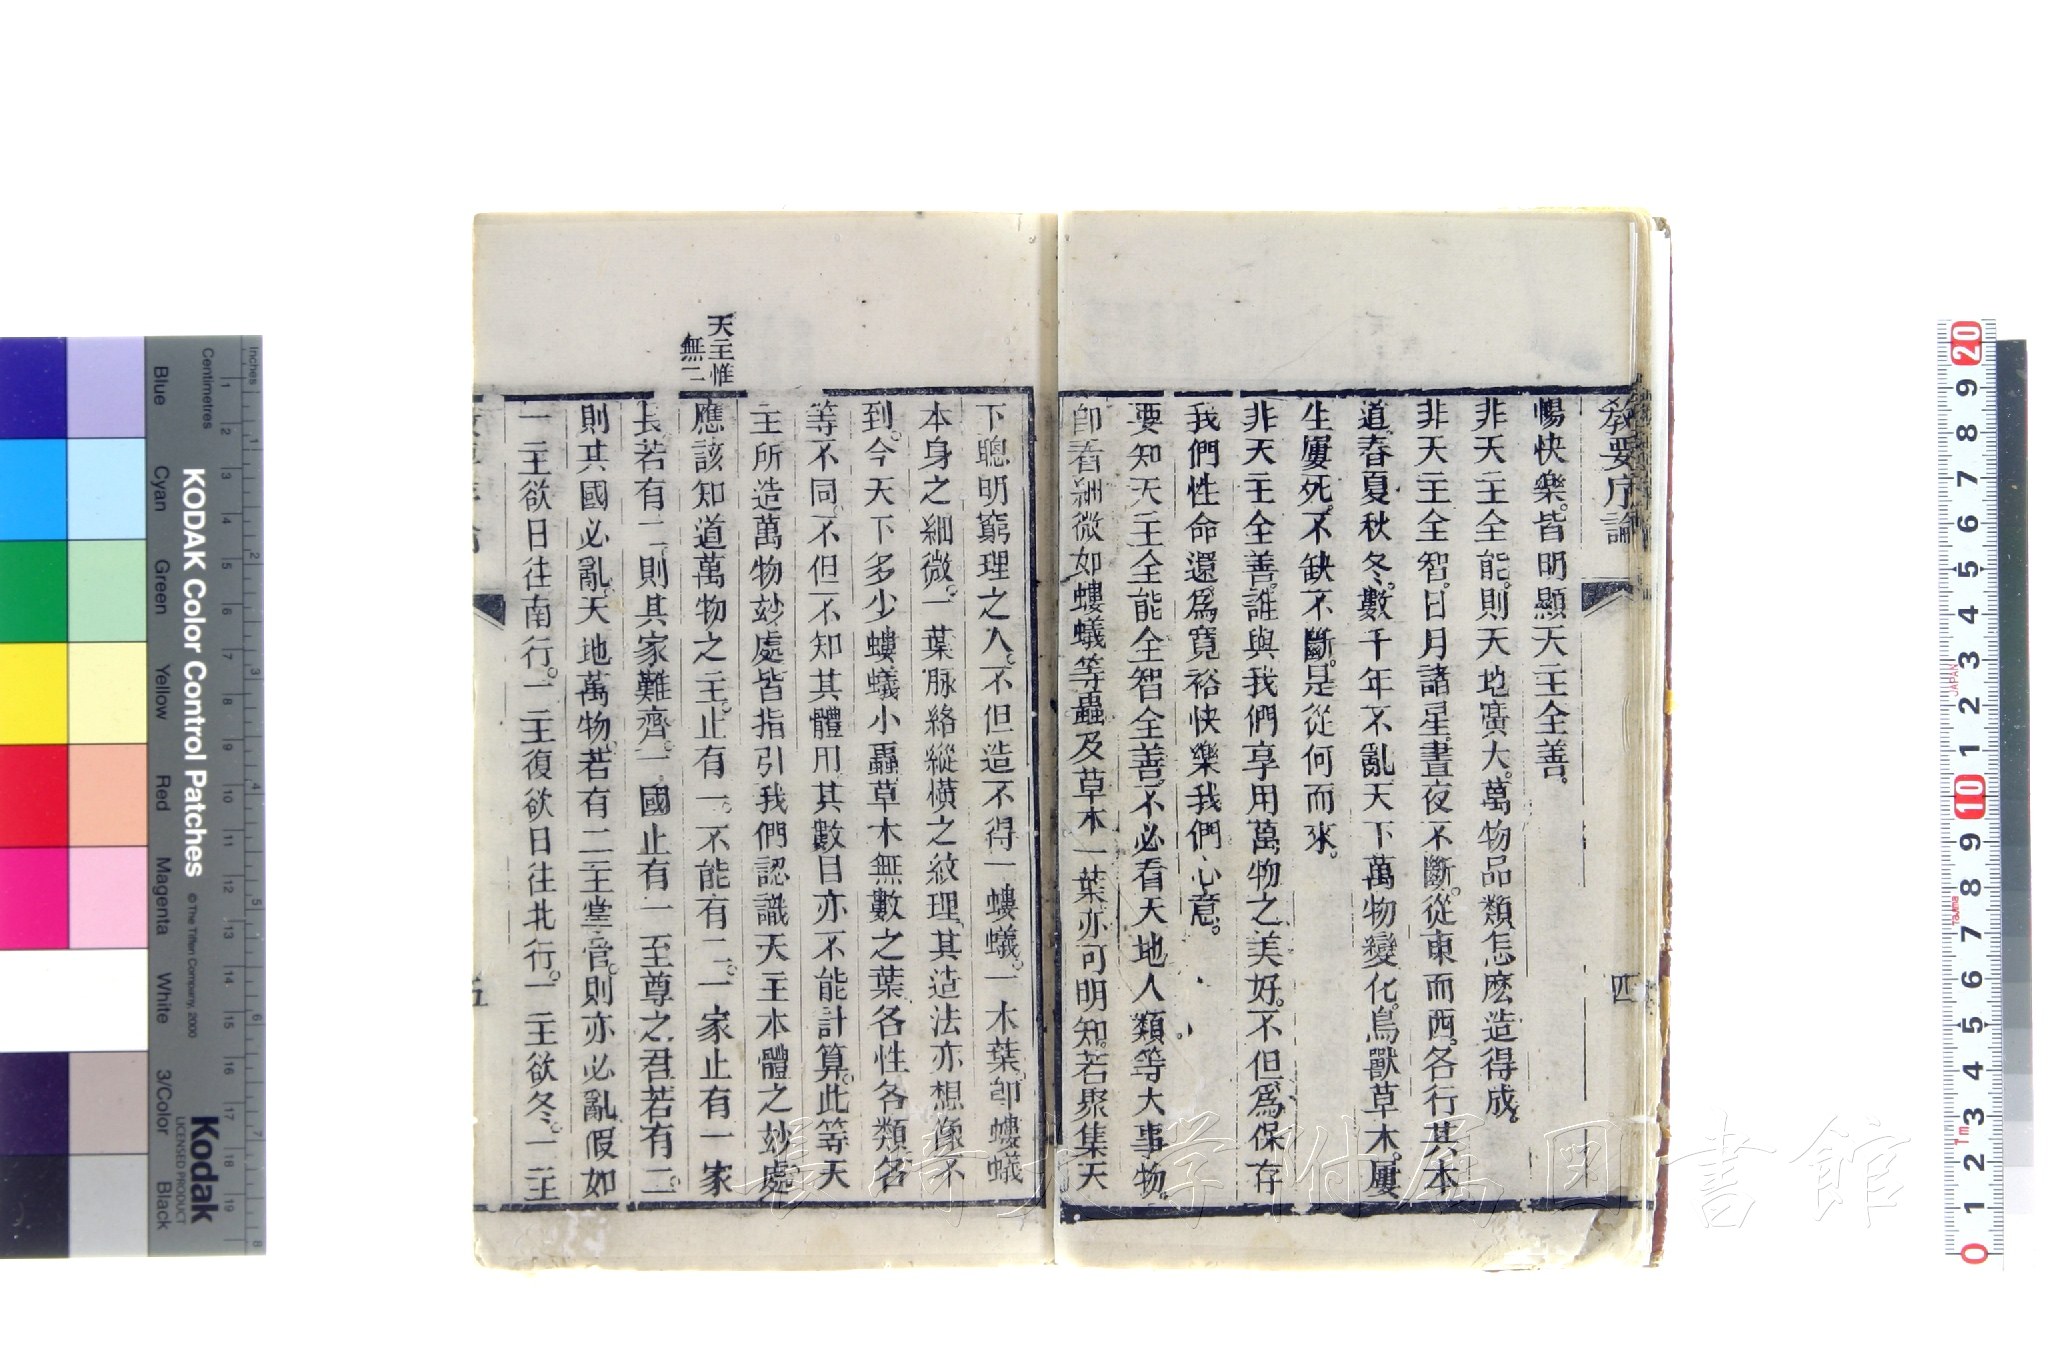 教要序論
四
暢快樂。皆明顯天主全善。
非天主全能。則天地寬大。萬物品類怎麼造得成。
非天主全智。日月諸星。晝夜不斷。從東而西。各行其本
道。春夏秋冬。數千年不亂。天下萬物變化。鳥獸草木。屢
生屢死。不缺不斷。是從何而來。
非天主全善。誰與我們享用萬物之美好。不但爲保存
我們性命。還爲寬裕快樂我們心意。
要知天主全能全智全善。不必看天地人類等大事物。
卽看細微如螻蟻等蟲。及草木一葉。亦可明知。若聚集天
下聰明窮理之人。不但造不得一螻蟻。一木葉。卽螻蟻
本身之細微。一葉脉絡縱橫之紋理。其造法亦想像不
到。今天下多少螻蟻小蟲草木無數之葉。各性各類各
等不同。不但不知其體用。其數目亦不能計算。此等天
主所造萬物玅處。皆指引我們認識天主本體之玅處
天主惟
無二
應該知道萬物之主。止有一。不能有二。一家止有一家
長。若有二。則其家難齊。一國止有一至尊之君。若有二。
則其國必亂。天地萬物。若有二主掌管。則亦必亂。假如
一主欲日往南行。一主復欲日往北行。一主欲冬。一主
五
KODAK Color Control Patches
© The Tiffen Company, 2000
Kodak
LICENSED PRODUCT
Inches
Centimetres
Blue
Cyan
Green
Yellow
Red
Magenta
White
3/Color
Black
JAPAN
Tajima
長崎大学附属図書館